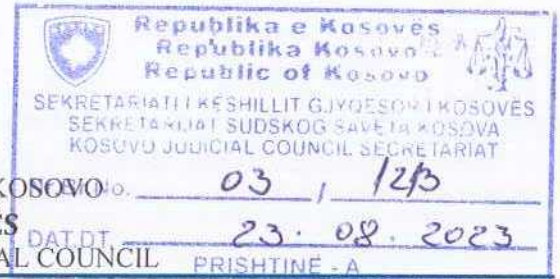 Republika e Kosovës
Republika Kosovo
Republic of Kosovo
SEKRETARIATI I KËSHILLIT GJYQËSOR I KOSOVËS
SEKRETARIJAT SUDSKOG SAVETA KOSOVA
KOSOVO JUDICIAL COUNCIL SECRETARIAT
KOSOVO No. 03 /
ES
DAT.DT. 23. 08. 2023
AL COUNCIL PRISHTINË - A